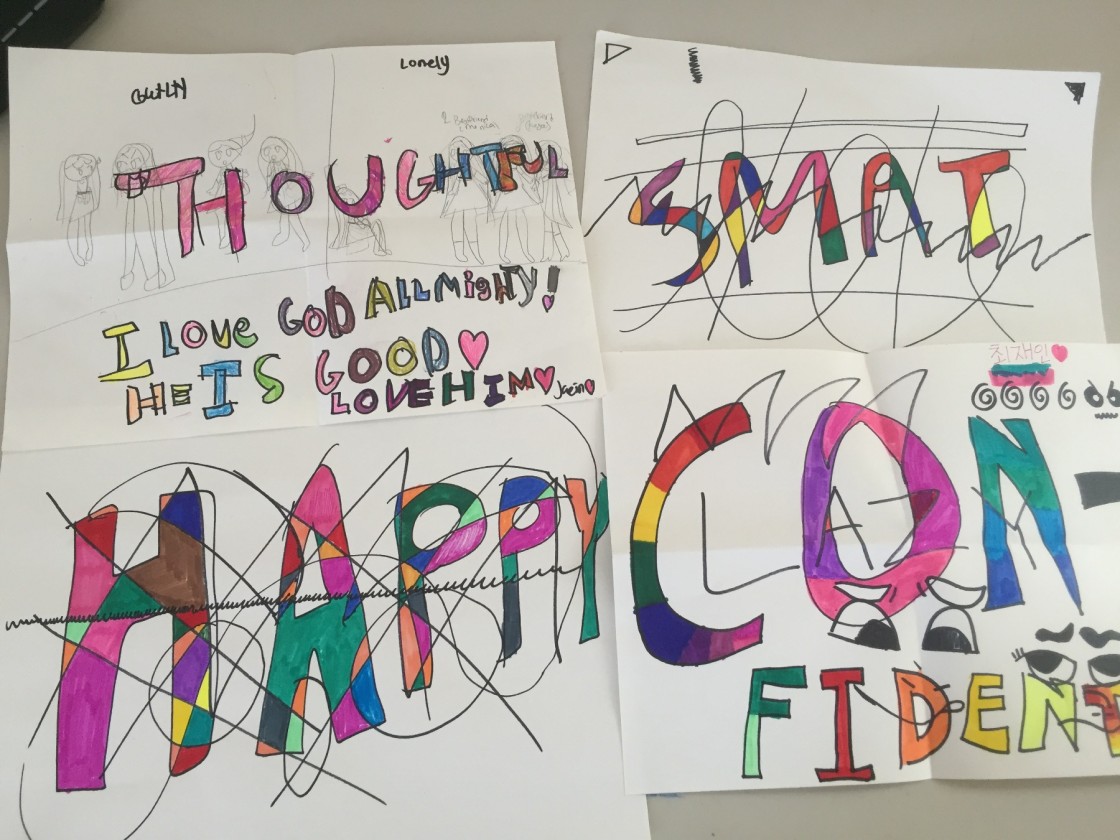 GUILTY
Lonely
THOUGHTFUL
I LOVE GOD ALLMIGHTY!
HE IS GOOD♥
LOVE HIM♥ Jaein♥
SMAT
HAPPY
최재인♥
CON-
LAZY
FIDENT